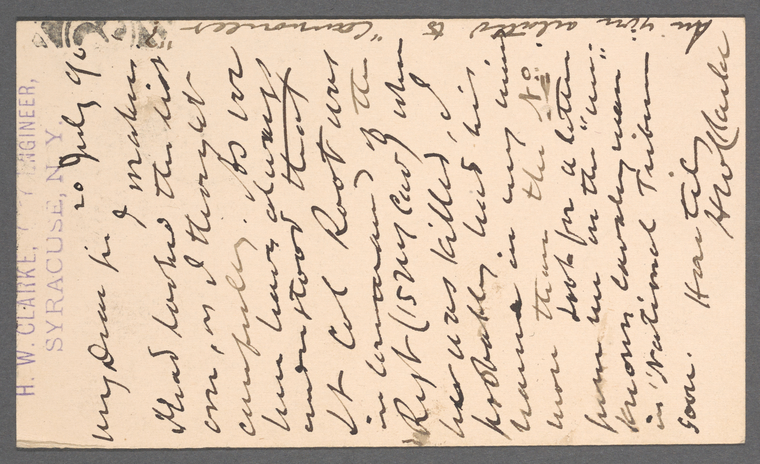 H. W. CLARKE, ENGINEER,
SYRACUSE, N. Y.
20 July 90
My Dear Sir
I had looked the list
over, as I thought
carefully. As we
have always
understood that
Lt Col Root was
in command of the
Regt (15 NY Cav) when
he was killed, I
probably had his
name in my mind
more than the No.
Look for a letter
from me in the "un-
known cavalry man"
in "National Tribune
soon. Hastily
H W Clarke
to "Cannoneer"